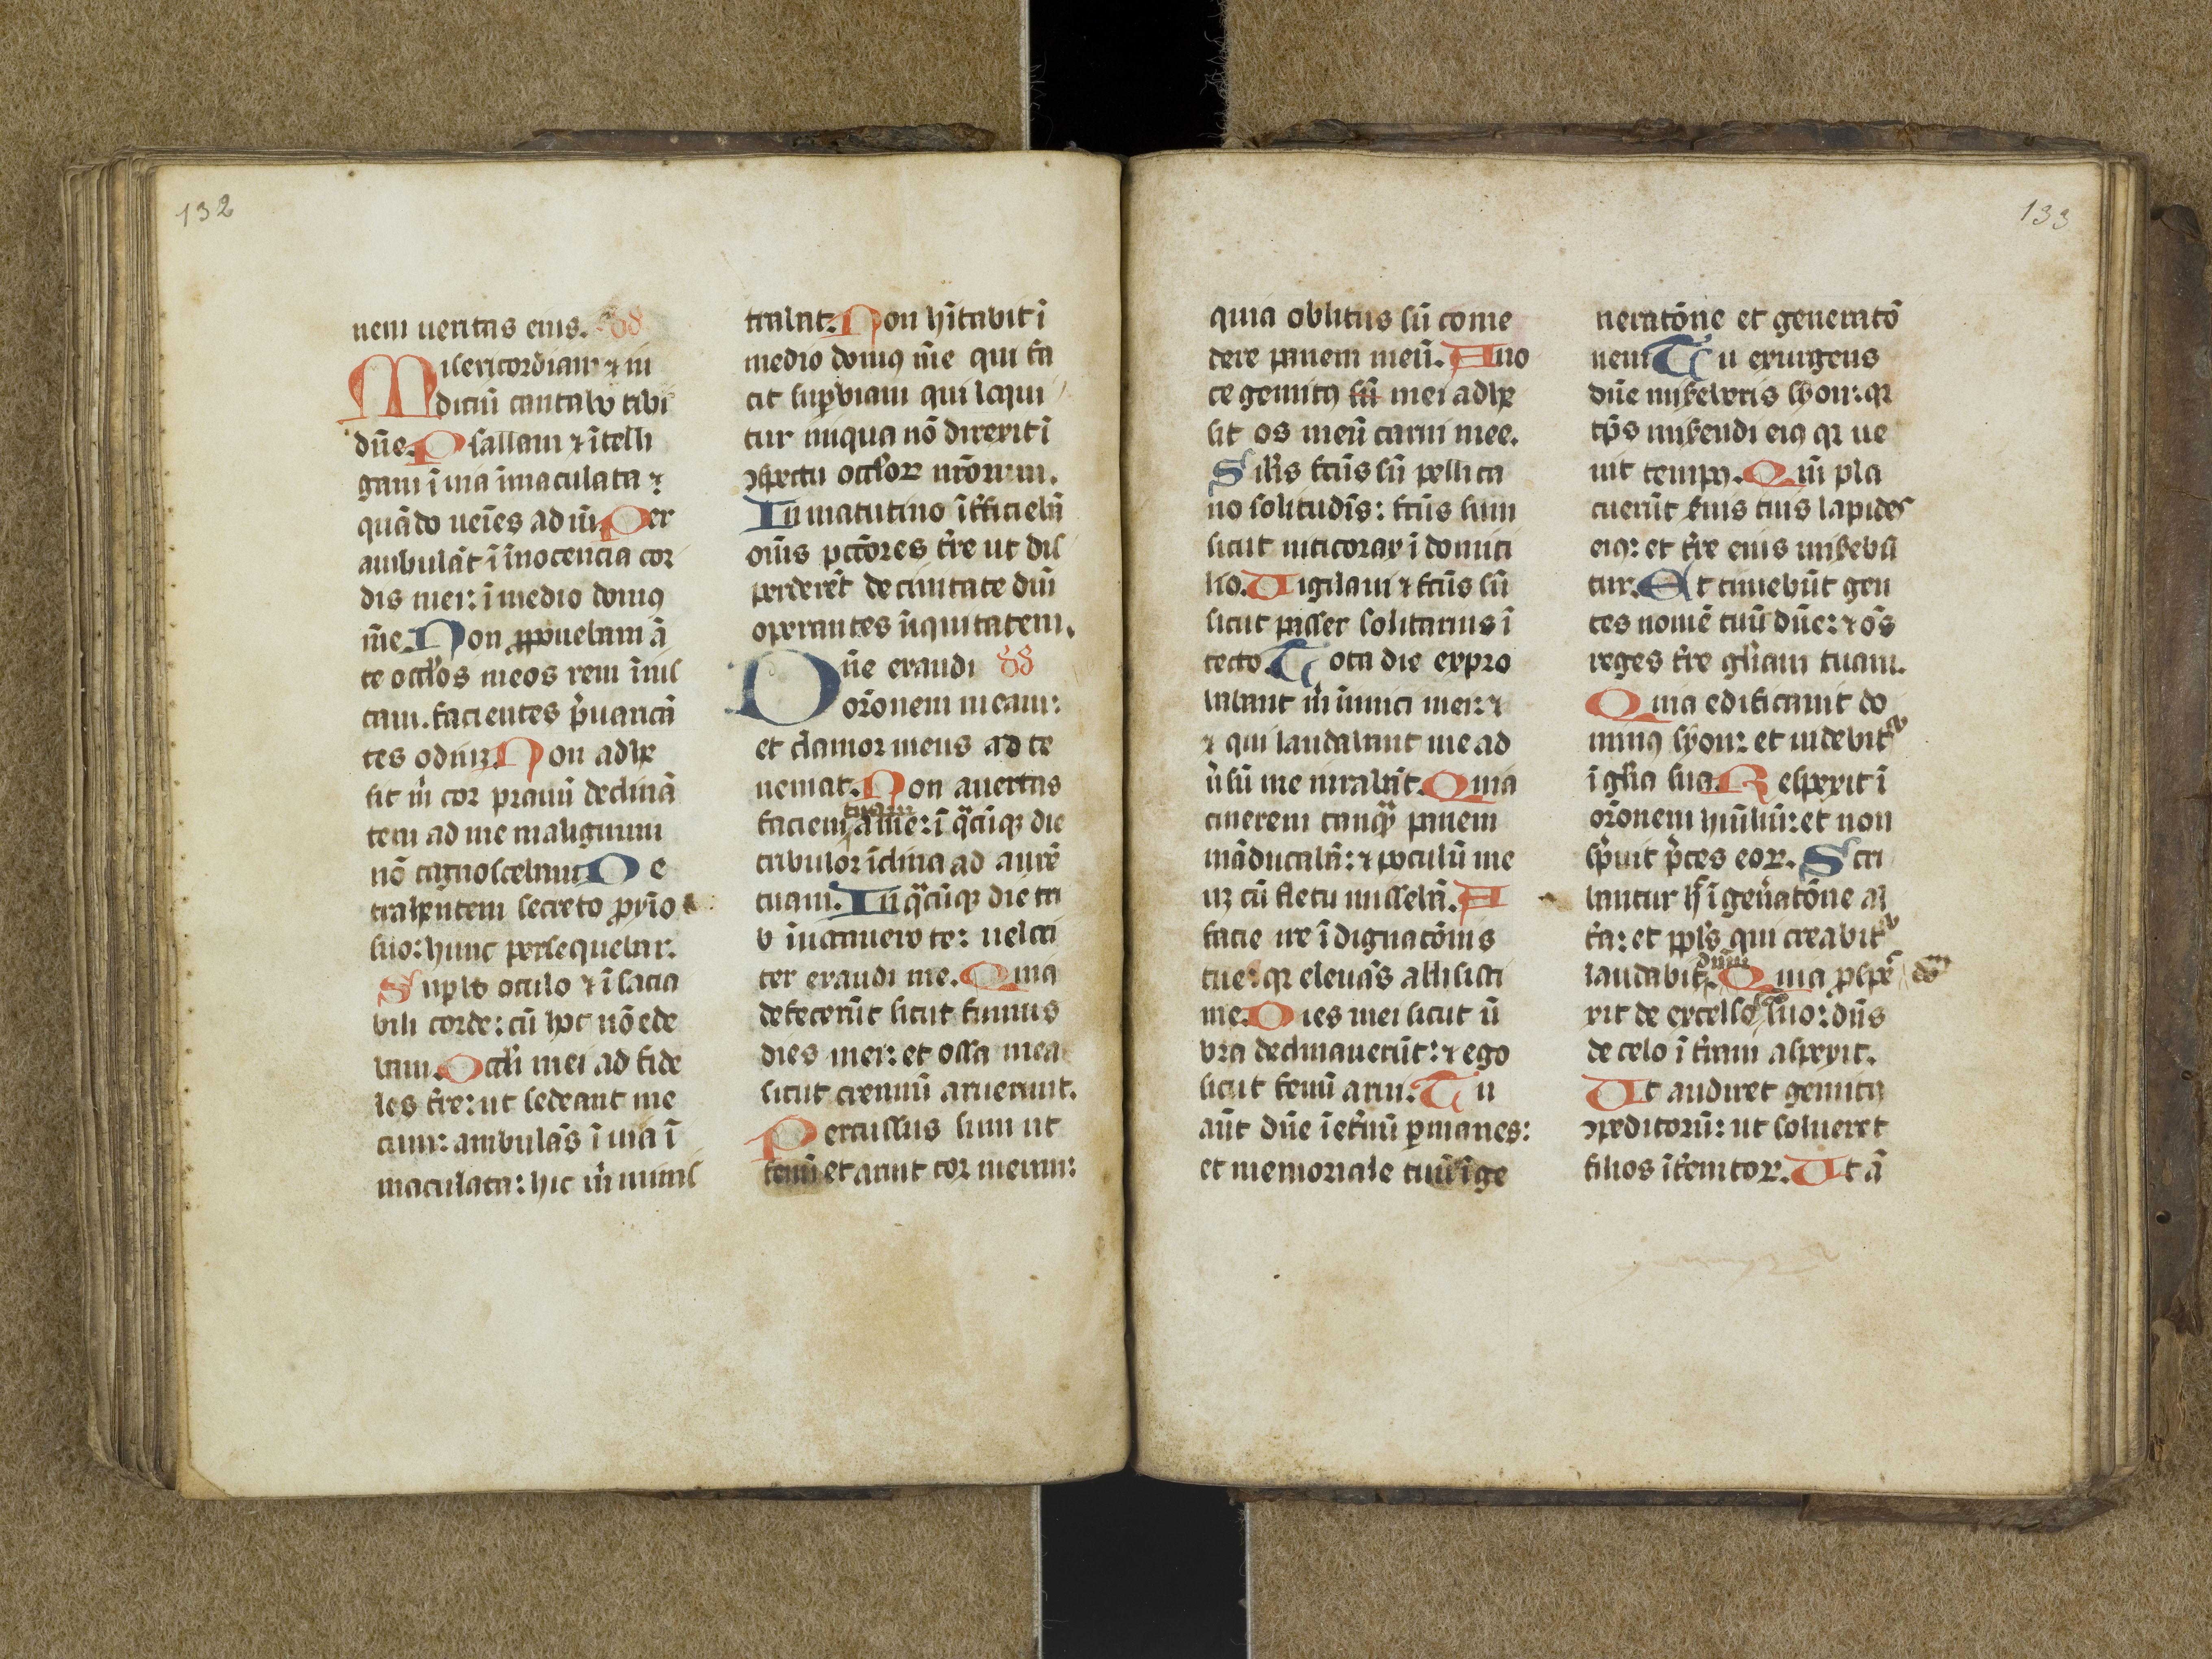 132
nem ueritas eius. ps
Misericordiam ⁊ iu
diciū cantabo tibi
dn̄e. Psallam ⁊ ītelli
gam ī uia īmaculata ⁊
quādo ueīes ad m̄. Per
ambulāt ī īnocencia cor
dis mei: ī medio domꝯ
m̄e. Non ꝓponebam ā
te occl̄os meos rem īius
tam. facientes p̄uaricā
tes odiuiꝫ. Non adhe
sit m̄ cor prauū declinā
tem ad me malignum
nō cognoscebam. De
trahentem secreto ꝓxīo
suo: hunc persequebar.
Suꝑbo oculo ⁊ ī sacia
bili corde: cū hoc nō ede
bam. Occl̄i mei ad fide
les tr̄e: ut sedeant me
cum: ambulās ī uia ī
maculata: hic m̄ minis
trabat. Non hītabit ī
medio domꝯ m̄e qui fa
cit suꝑbiam qui loqui
tur iniqua nō direxit ī
ↄspectu occl̄oꝝ meoꝝum.
In matutino īt̄ficiebā
om̄s pctōres tr̄e ut dis
perderē̄t de ciuitate dn̄i
operantes īiquitatem.
Dn̄e exaudi ps
orōnem meam:
et clamor meus ad te
ueniat. Non auertas
tuam
faciem a me: ī q̄cūqꝫ die
tribulor īclina ad aurē
tuam. In q̄cūqꝫ die in
uocauero te: uelociter
ter exaudi me. Quia
defecerūt sicut fumus
dies mei: et ossa mea
sicut cremiū aruerunt.
Percussus sum ut
fenū et aruit cor meum:
133
quia oblitus sū come
dere panem meū. A uo
ce gemitꝯ sū mei adhe
sit os meū carni mee.
Silis fcūs sū pellica
no solitudīs: fcūs sum
sicut niticorax ī domici
lio. Uigilaui ⁊ fcūs sū
sicut passer solitarius ī
tecto. Tota die expro
babant m̄ īimici mei: ⁊
⁊ qui laudabant me ad
u̇sū me iurabāt. Quia
cinerem tanqꝫ panem
māducabā: ⁊ poculū me
uꝫ cū fletu miscebā. A
facie ire īdignatōnis
tue: qꝛ eleuās allisisti
me. Dies mei sicut ū
bra declinauerūt: ⁊ ego
sicut fenū arui. Tu
aūt dn̄e ī et̄nū ꝑmanes:
et memoriale tuū ī ge
neratōne et generatō
nem. Tu exurgens
dn̄e misereberis syon: qꝛ
tp̄s miserendi eiꝯ qꝛ ue
nit tempꝯ. Qm̄ pla
cuerūt s̄uis tuis lapides
eiꝯ: et tr̄e eius miserebū
tur. Et timebūt gen
tes nomē tuū dn̄e: ⁊ oēs
reges tr̄e gl̄iam tuam.
Quia edificauit do
minꝯ syon: et uidebit᷑
ī gl̄ia sua. Respexit ī
orōnem humiliū: et non
sp̄uit p̄ces eoꝝ. Scri
bantur h̄ ī gen̄atōne al
t̄a: et ppl̄s qui creabit᷑
dūm
laudabit. Quia ꝓspe dō
xit de excelso suo: dn̄s
de celo ī tr̄am aspexit.
Ut audiret gemitꝯ
ↄpeditorū: ut solueret
filios īt̄emptoꝝ. Ut ā